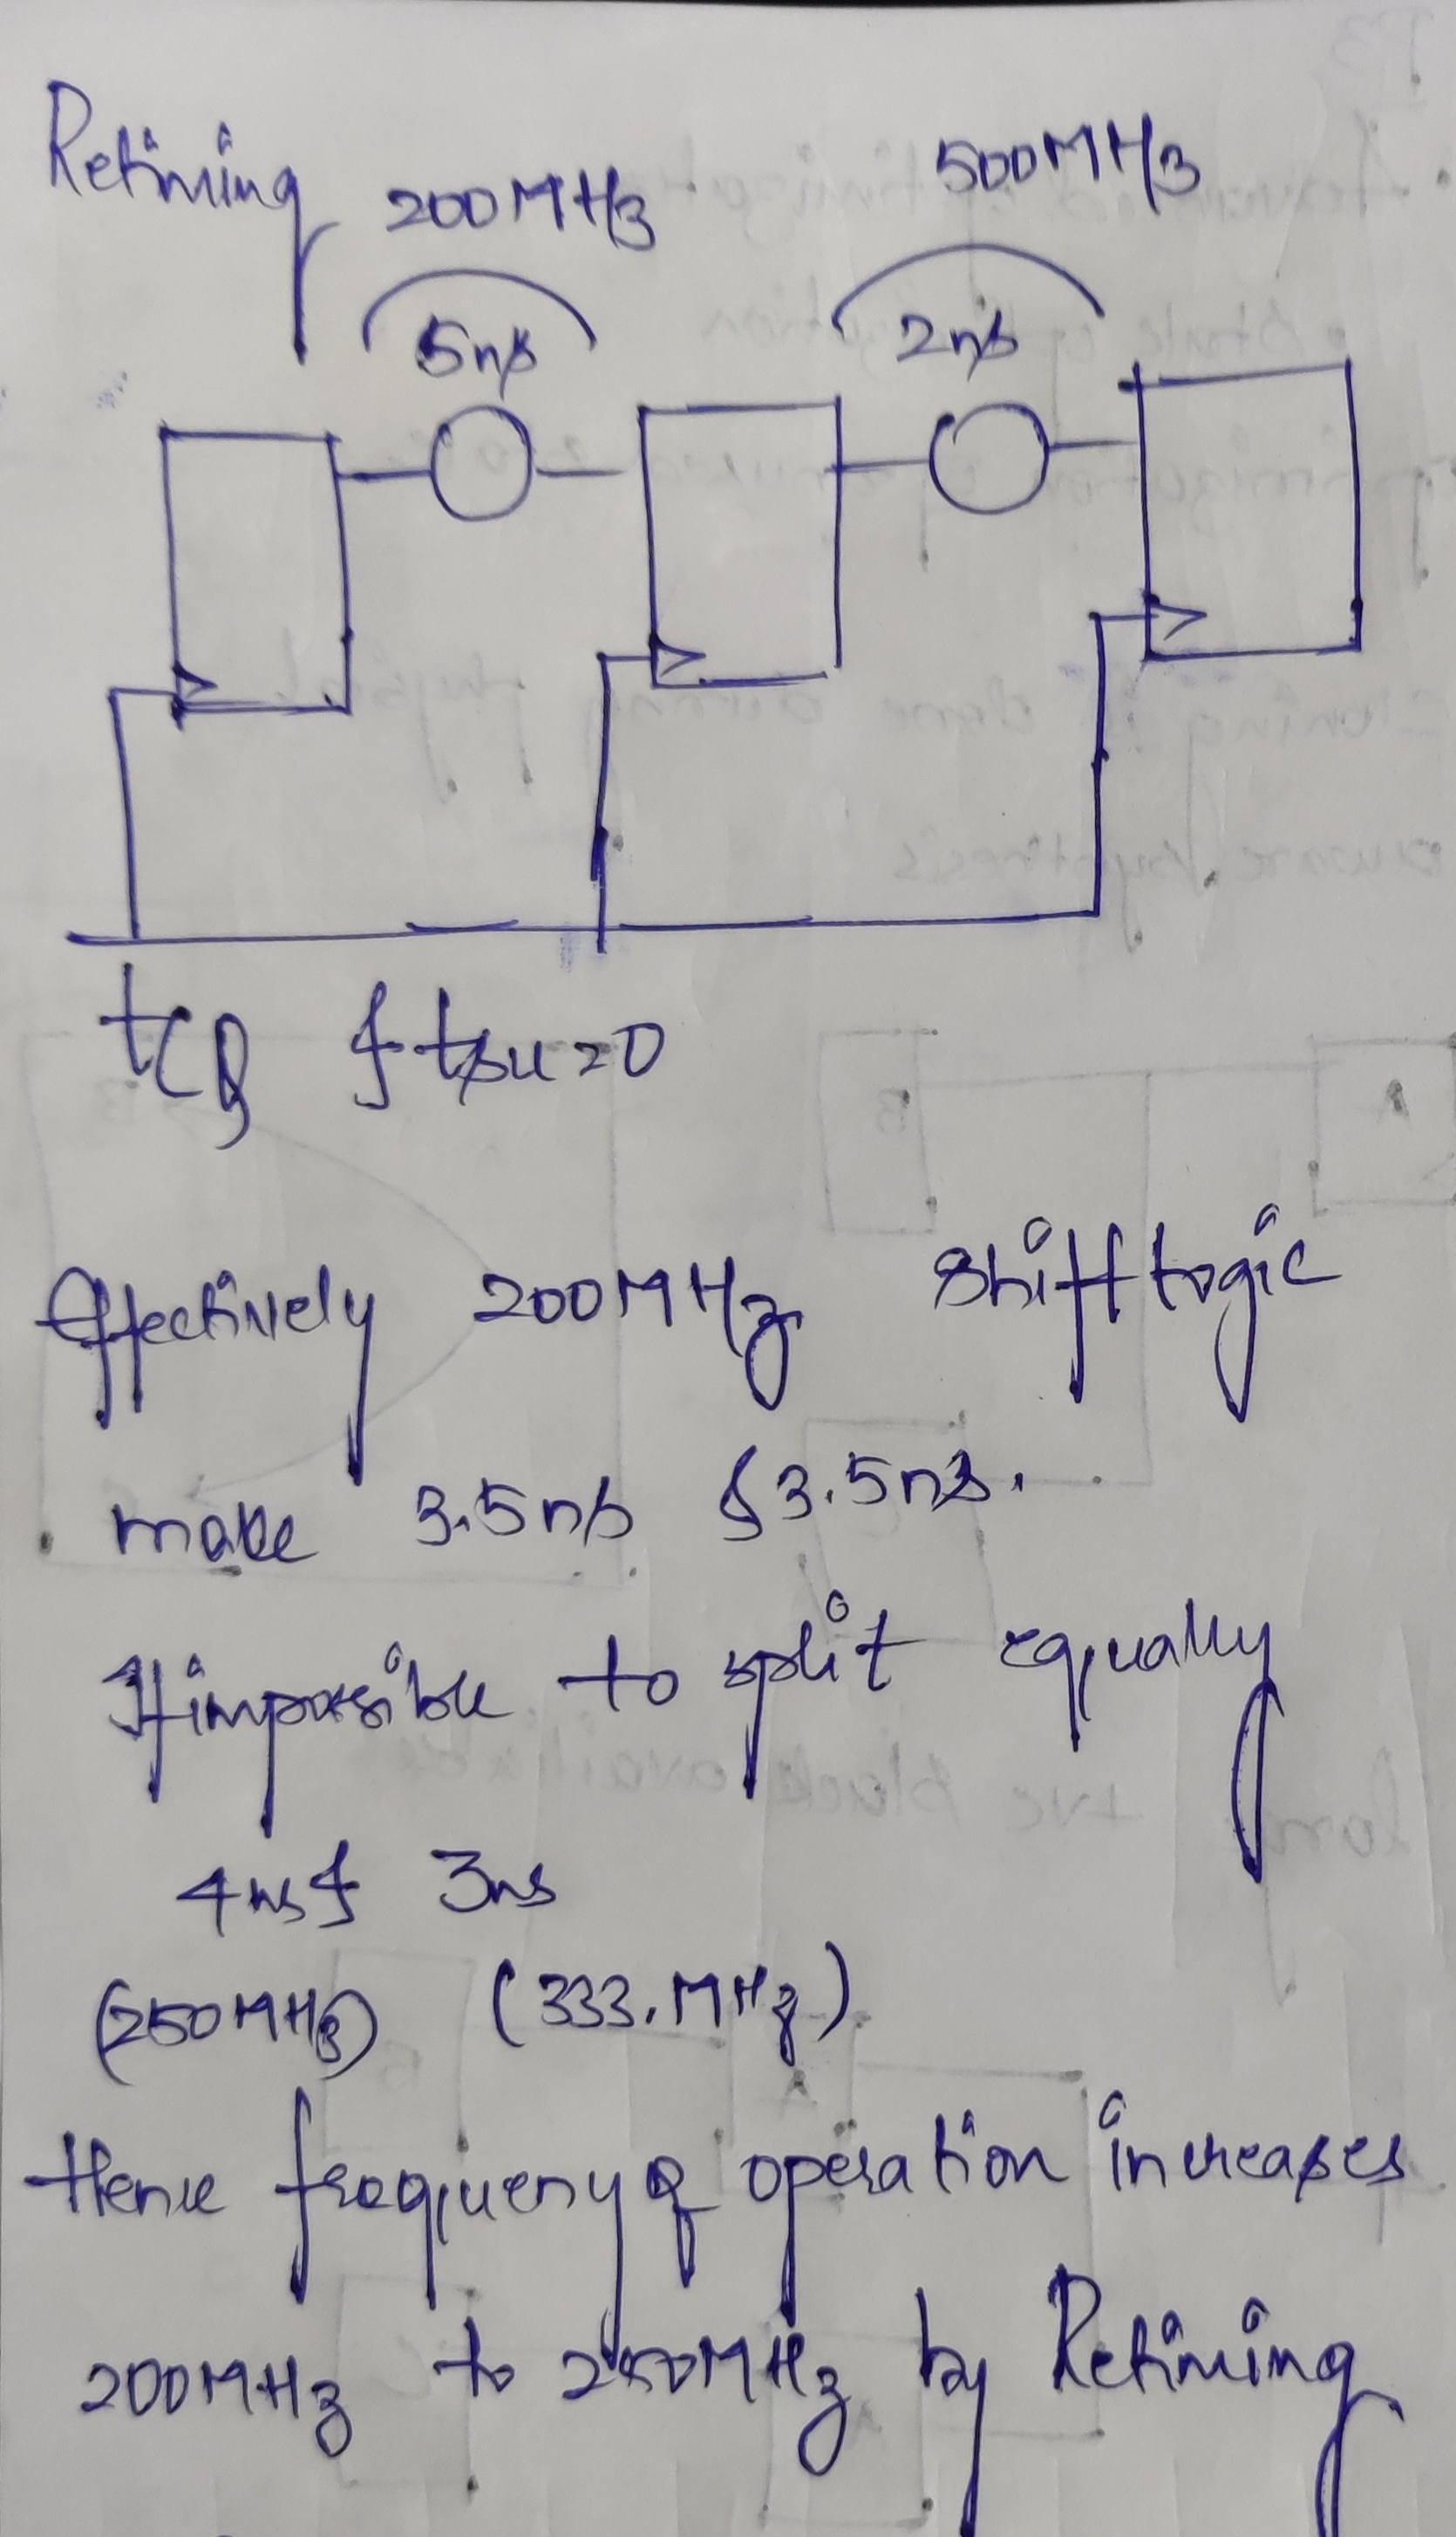 Retiming
200MHz
500MHz
5ns
2ns
tCQ & tsu=0
Effectively 200MHz shift logic
make 3.5ns & 3.5ns.
If impossible to split equally
4ns & 3ns
(250MHz) (333.MHz)
Hence frequency of operation increases
200MHz to 250MHz by Retiming